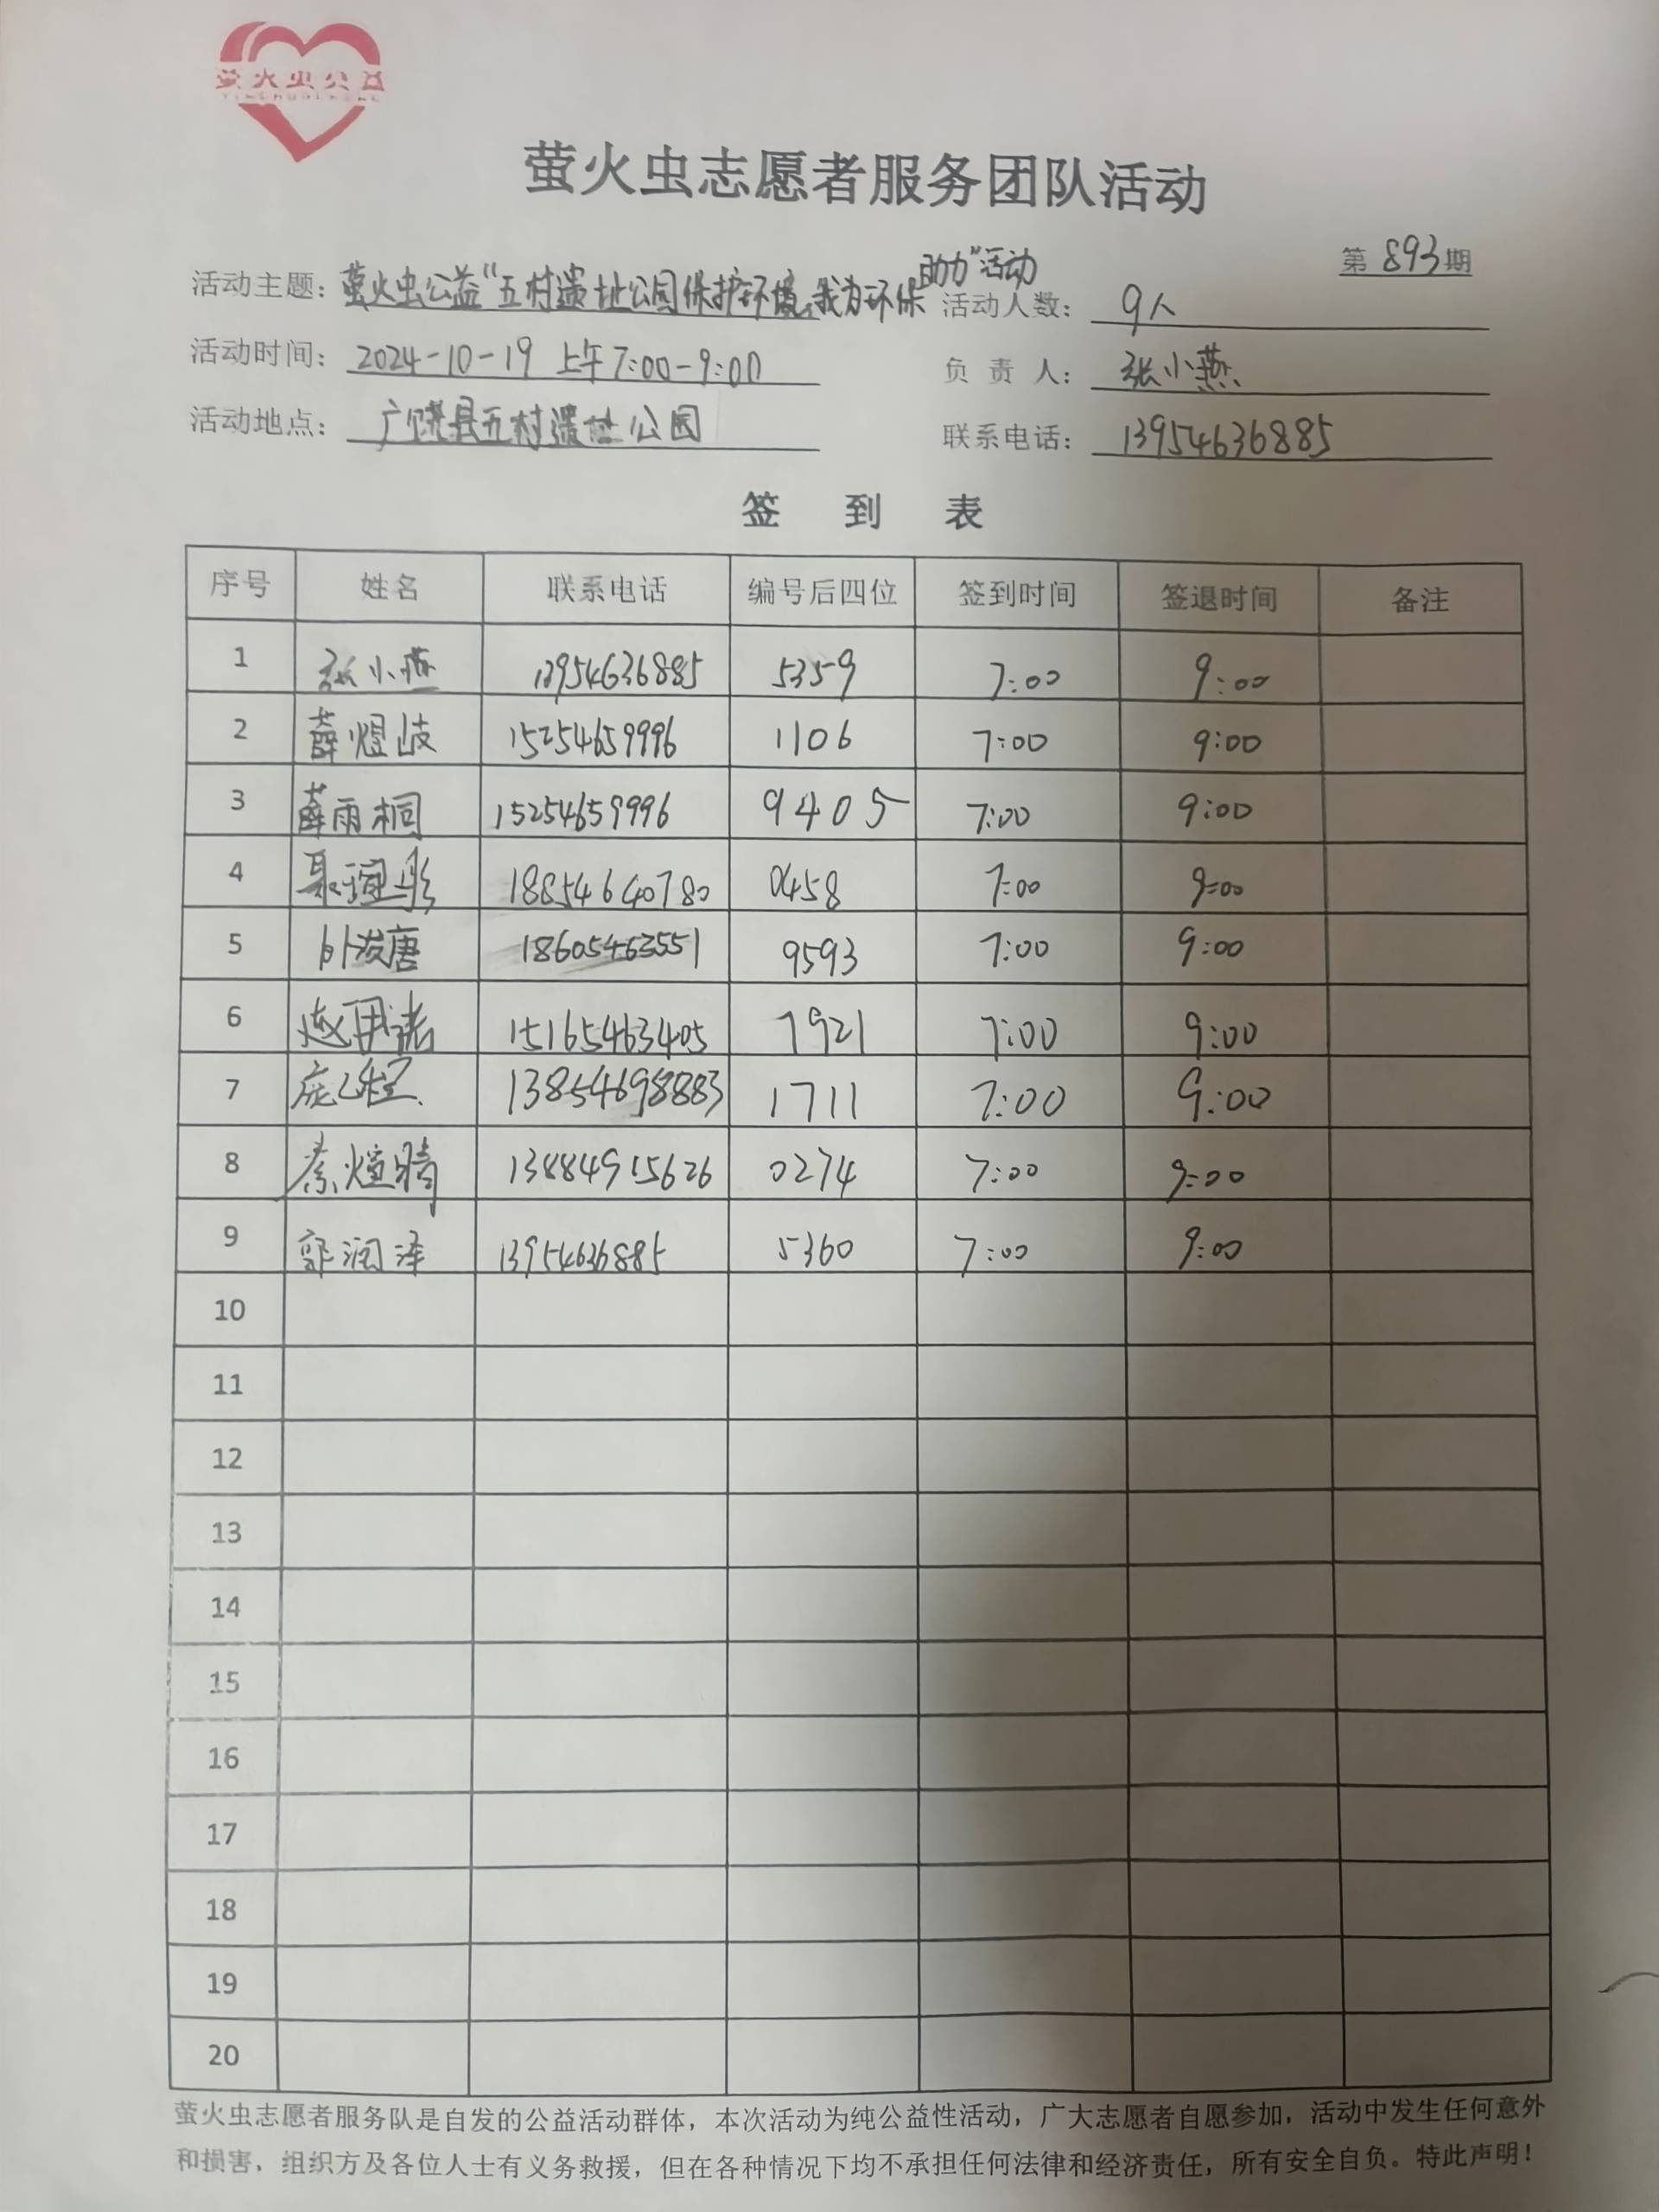 萤火虫公益
萤火虫志愿者服务团队活动
第 893 期
活动主题：萤火虫公益“五村遗址公园保护环境，我为环保助力”活动
活动人数：9人
活动时间：2024-10-19 上午7:00-9:00
负责人：张小燕
活动地点：广饶县五村遗址公园
联系电话：13954636885
签到表
序号 姓名 联系电话 编号后四位 签到时间 签退时间 备注
1 张小燕 13954636885 5359 7:00 9:00
2 薛煜岐 15254659996 1106 7:00 9:00
3 薛雨桐 15254659996 9405 7:00 9:00
4 18854640780 0458 7:00 9:00
5 18605463551 9593 7:00 9:00
6 赵 151654463405 7921 7:00 9:00
7 13854698883 1711 7:00 9:00
8 13884915626 0274 7:00 9:00
9 郭润泽 13954636885 5360 7:00 9:00
10
11
12
13
14
15
16
17
18
19
20
萤火虫志愿者服务队是自发的公益活动群体，本次活动为纯公益性活动，广大志愿者自愿参加，活动中发生任何意外
和损害，组织方及各位人士有义务救援，但在各种情况下均不承担任何法律和经济责任，所有安全自负。特此声明！